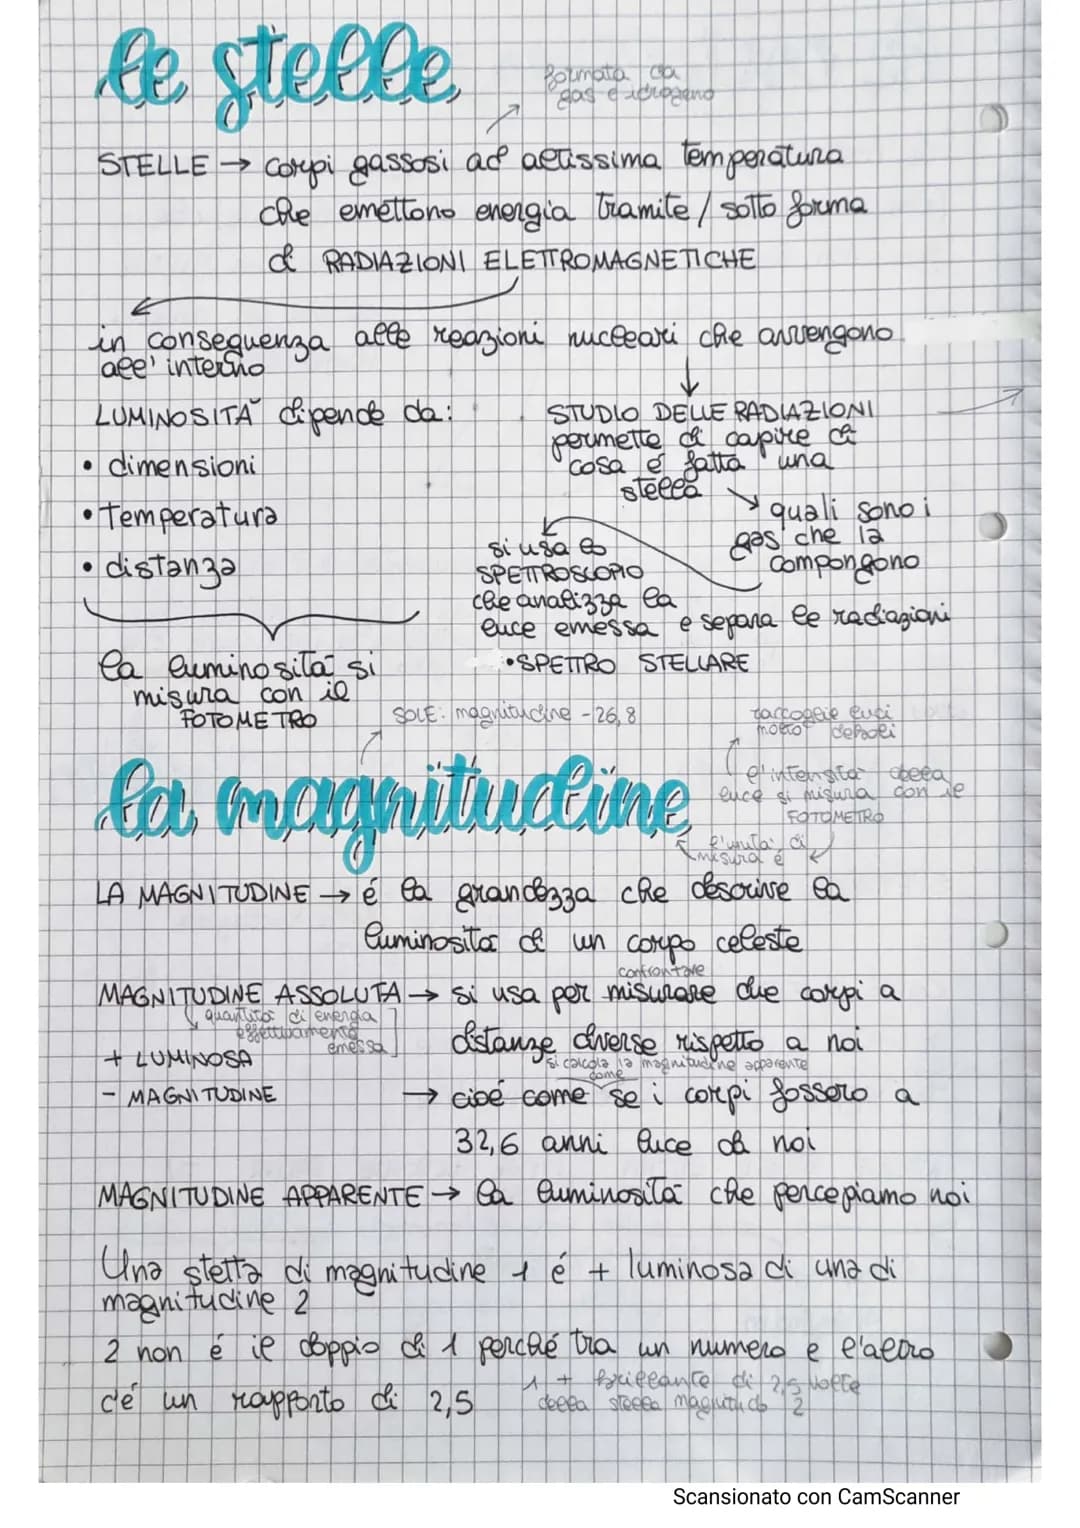 le stelle
formata da
gas e idrogeno
STELLE → corpi gassosi ad altissima temperatura
che emettono energia tramite / sotto forma
di RADIAZIONI ELETTROMAGNETICHE
in conseguenza alle reazioni nucleari che avvengono
all' interno
LUMINOSITÀ dipende da:
• dimensioni
• temperatura
• distanza
la luminosità si
misura con il
FOTOMETRO
STUDIO DELLE RADIAZIONI
permette di capire di
cosa é fatta una
stella
quali sono i
gas che la
compongono
si usa lo
SPETTROSCOPIO
che analizza la
luce emessa e separa le radiazioni
•SPETTRO STELLARE
SOLE: magnitudine -26,8
raccoglie luci
molto deboli
l'intensità della
luce si misura con il
FOTOMETRO
l'unità di
misura é
la magnitudine
LA MAGNITUDINE → é la grandezza che descrive la
luminosità di un corpo celeste
confrontare
MAGNITUDINE ASSOLUTA → si usa per misurare due corpi a
quantità di energia
effettivamente
emessa
distanze diverse rispetto a noi
+ LUMINOSA
si calcola la magnitudine apparente
come
- MAGNITUDINE
→ cioé come se i corpi fossero a
32,6 anni luce da noi
MAGNITUDINE APPARENTE → la luminosità che percepiamo noi
Una stella di magnitudine 1 é + luminosa di una di
magnitudine 2
2 non é il doppio di 1 perché tra un numero e l'altro
c'é un rapporto di 2,5
1 + brillante di 2,5 volte
della stella magnitudo 2
Scansionato con CamScanner